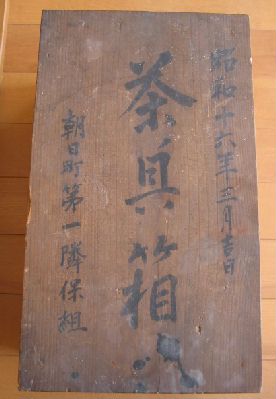 昭和十六年三月吉日
茶具箱
朝日町第一隣保組